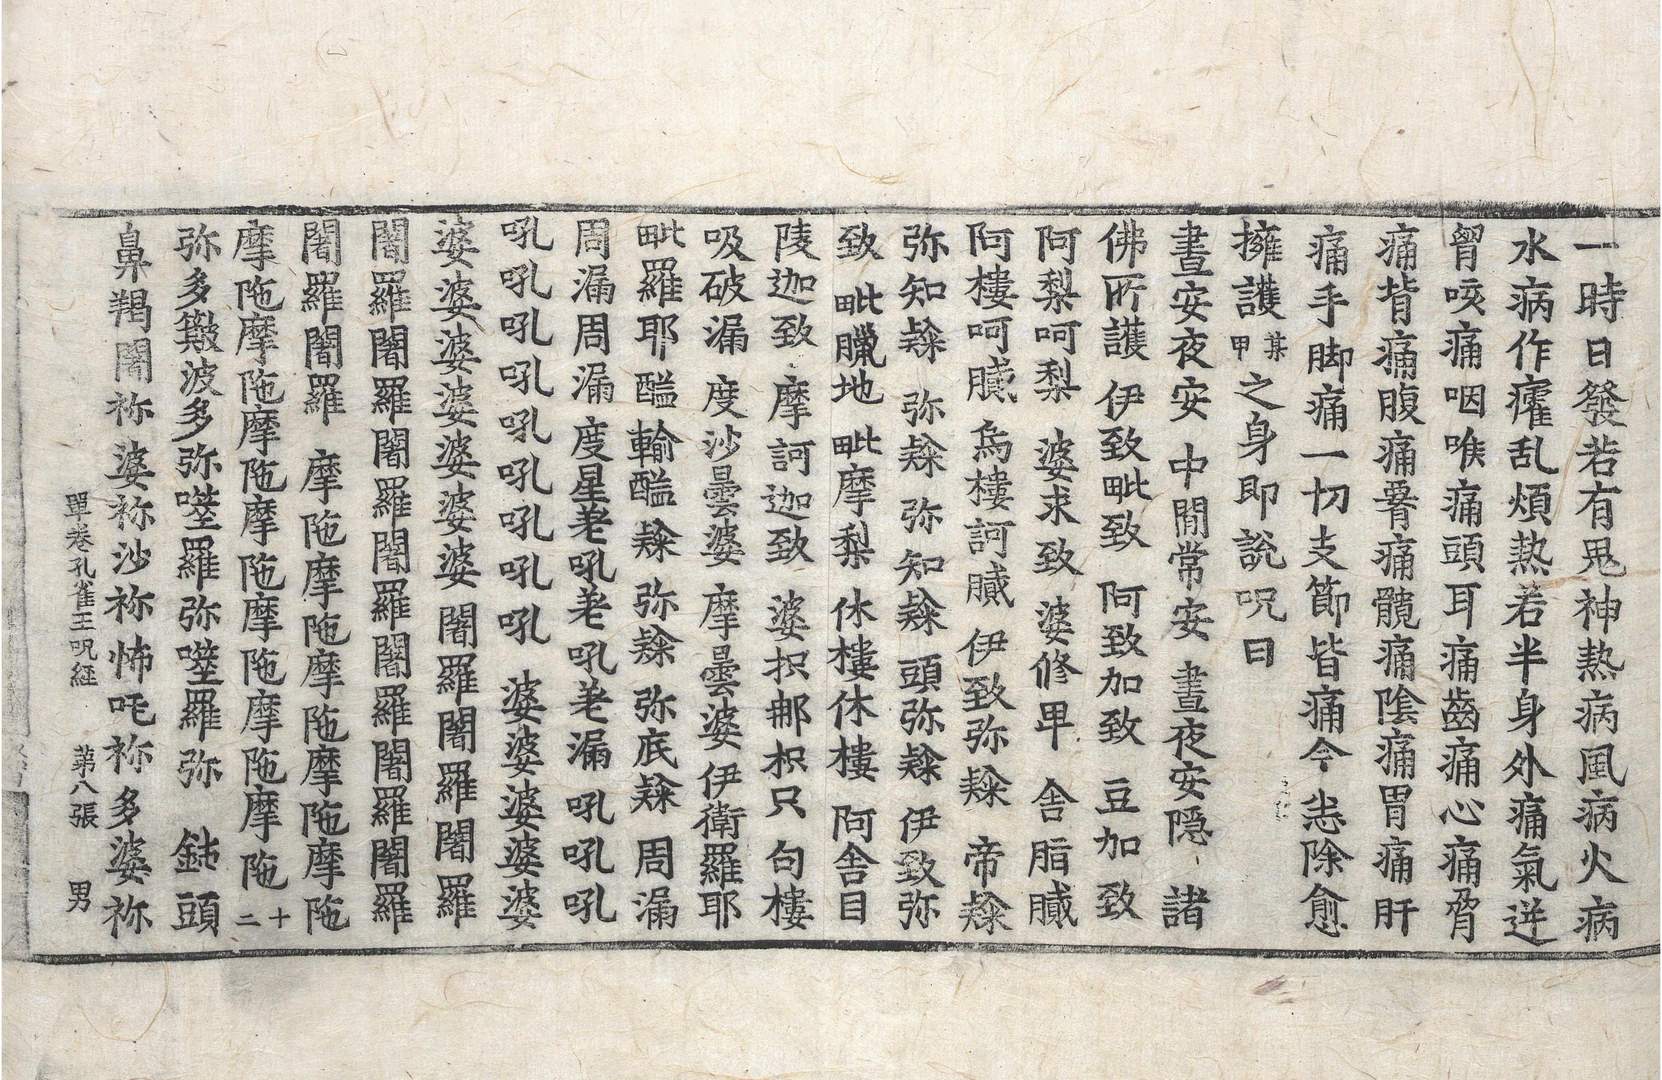 一時日發若有鬼神熱病風病火病
水病作癨乱煩熱若半身外痛氣逆
胷咳痛咽喉痛頭耳痛齒痛心痛脅
痛背痛腹痛䐡痛髖痛陰痛胃痛肝
痛手脚痛一切支節皆痛今恙除愈
擁護某甲之身即說呪曰
晝安夜安 中間常安 晝夜安隠 諸
佛所護 伊致毗致 阿致加致 豆加致
阿梨呵梨 婆求致 婆修甲 舎脂膩
阿樓呵膩 烏樓訶膩 伊致弥𥻦 帝𥻦
弥知𥻦 弥𥻦 弥知𥻦 頭弥𥻦 伊致弥
致 毗臘地 毗摩梨 休樓休樓 阿舎目
陵迦致 摩訶迦致 婆枳郍枳只句樓
吸破漏 度沙曇婆 摩曇婆 伊衛羅耶
毗羅耶 醯輸醯𥻦 弥𥻦 弥底𥻦 周漏
周漏周漏 度星荖吼荖吼荖漏 吼吼吼
吼吼吼吼吼吼吼吼 婆婆婆婆婆
婆婆婆婆婆婆婆 闍羅闍羅闍羅
闍羅闍羅闍羅闍羅闍羅闍羅闍羅
闍羅闍羅 摩陁摩陁摩陁摩陁摩陁
摩陁摩陁摩陁摩陁摩陁摩陁摩陁十二
弥多㪇波多弥㘁羅弥㘁羅弥 鉢頭
鼻羯闍祢婆祢沙祢怖吒祢多婆祢
單卷孔雀王呪経 苐八張 男